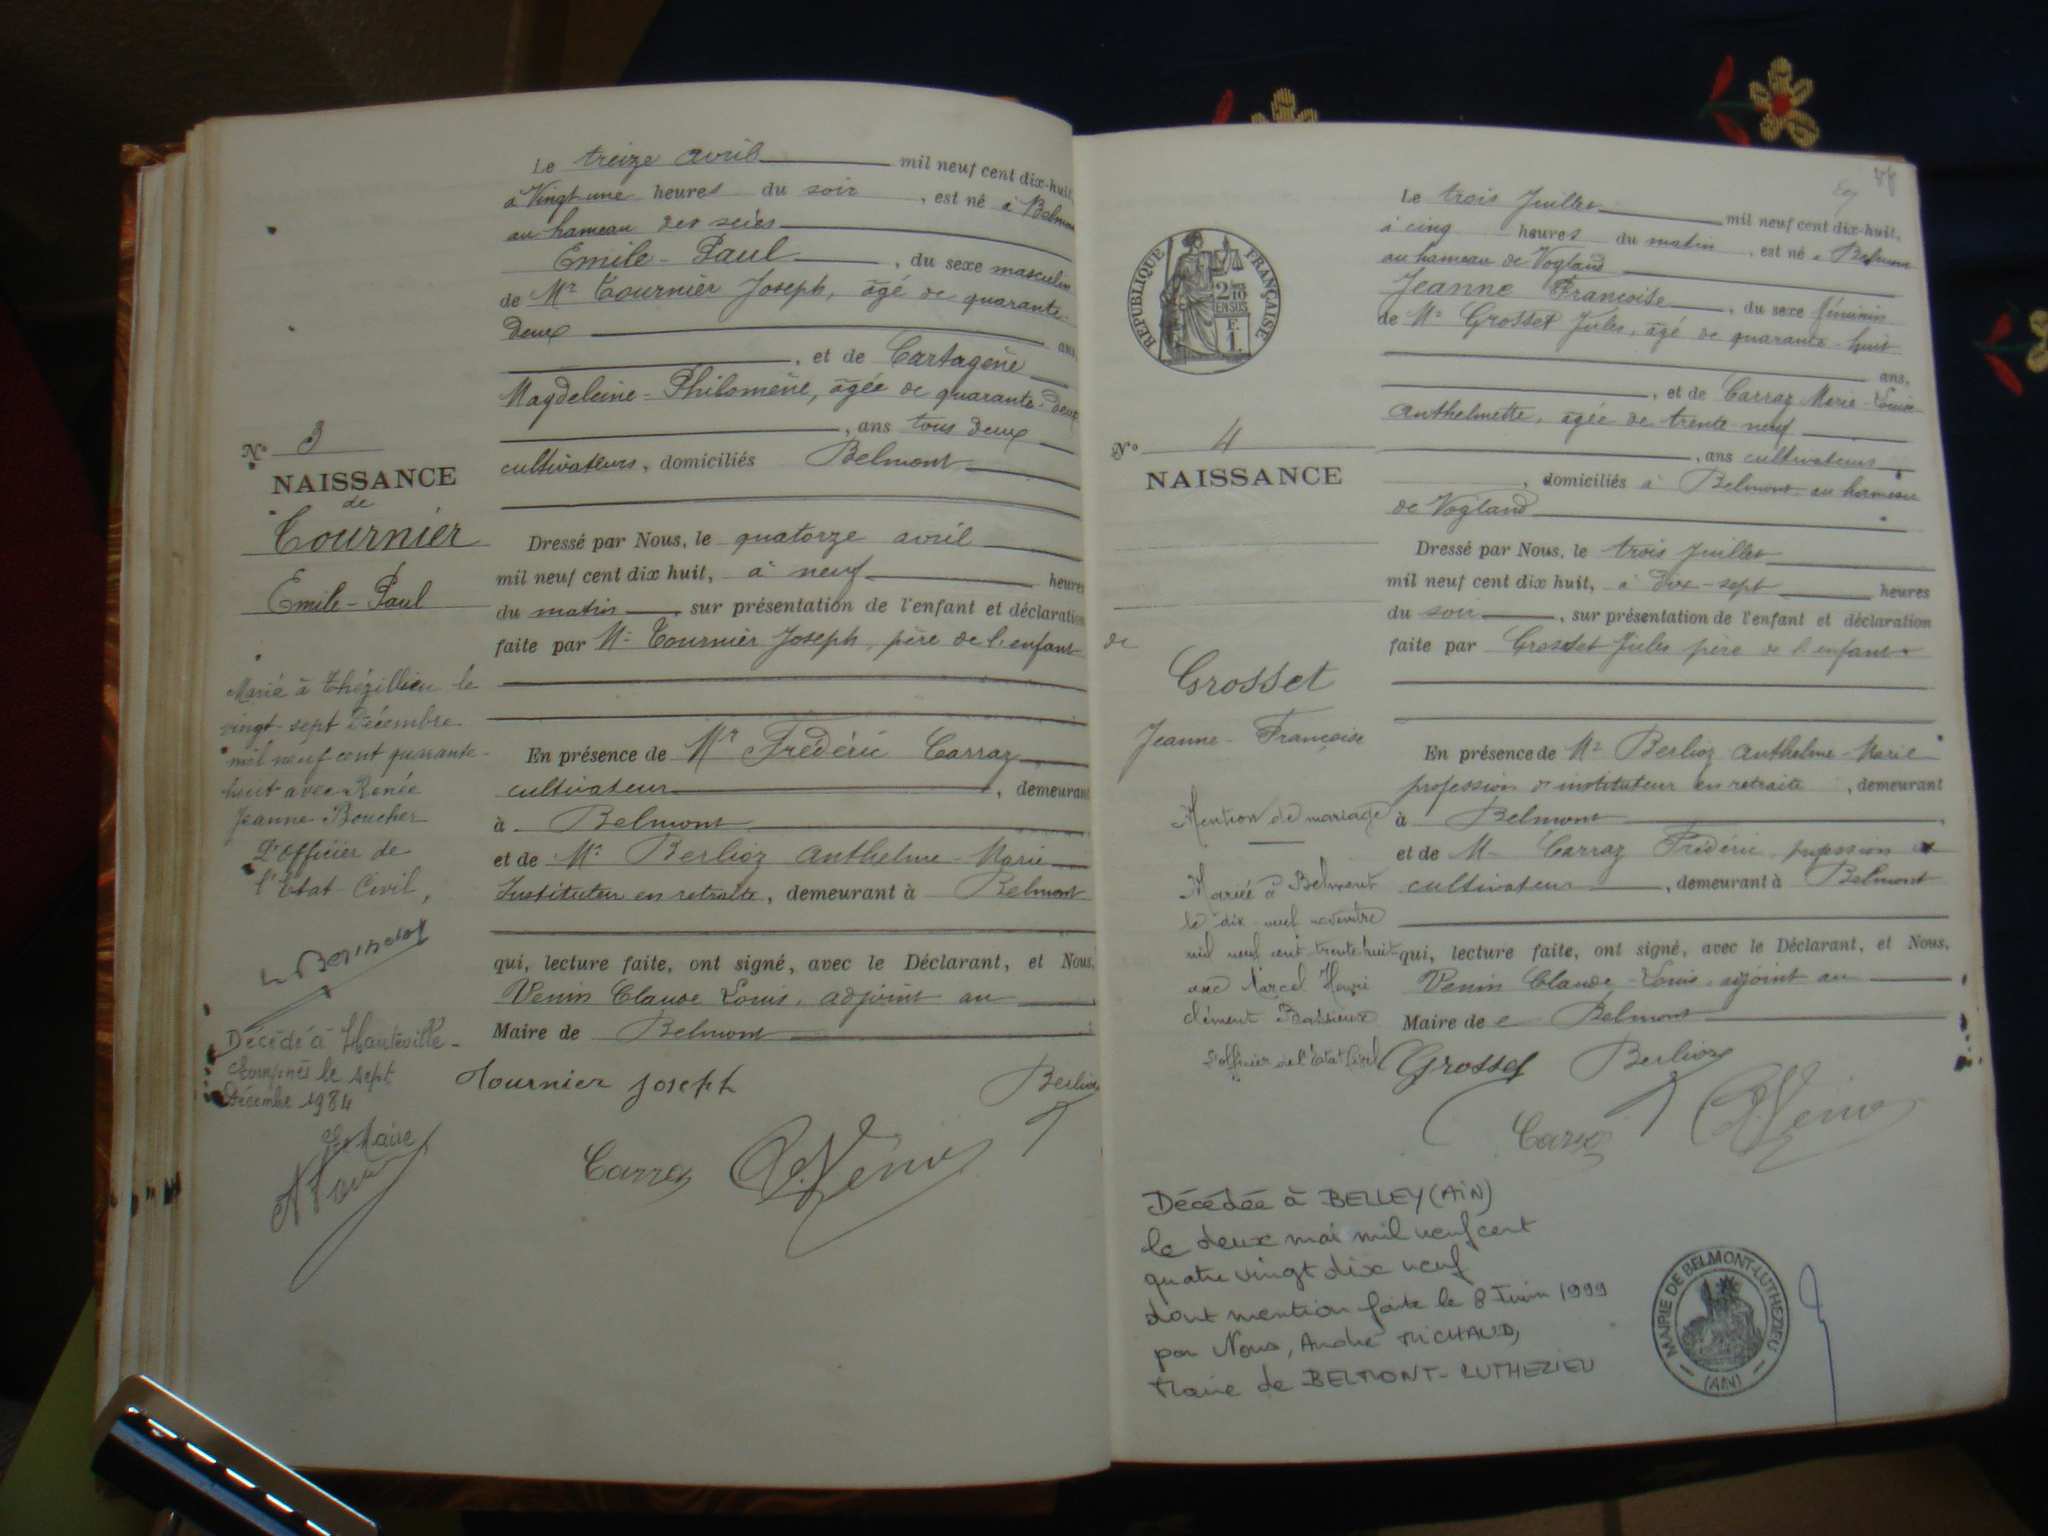 Le treize avril mil neuf cent dix-huit,
à Vingt-une heures du soir, est né à Belmont
au hameau des
Emile-Paul, du sexe masculin
de Mr Tournier Joseph, âgé de quarante-
deux ans,
, et de Cartagène
Magdeleine-Philomène, âgée de quarante-deux
, ans tous deux
cultivateurs, domiciliés Belmont
N° 3
NAISSANCE
de
Tournier
Emile-Paul
Dressé par Nous, le quatorze avril
mil neuf cent dix huit, à neuf heures
du matin, sur présentation de l'enfant et déclaration
faite par Mr Tournier Joseph, père de l'enfant
En présence de Mr Frédéric Carraz
cultivateur, demeurant
à Belmont
et de Mr Berlioz Anthelme-Marie
Instituteur en retraite, demeurant à Belmont
qui, lecture faite, ont signé, avec le Déclarant, et Nous,
Venin Claude Louis, adjoint au
Maire de Belmont
Tournier Joseph Berlioz
Carraz Venin
Marié à Thézillieu le
vingt-sept Décembre
mil neuf cent quarante-
huit avec Renée
Jeanne Boucher
L'Officier de
l'Etat-Civil,
Décédé à Hauteville-
Lompnes le sept
Décembre 1984
Le Maire
Le trois Juillet mil neuf cent dix-huit,
à cinq heures du matin, est né à Belmont
au hameau de Vogland
Jeanne Françoise, du sexe féminin
de Mr Grosset Jules, âgé de quarante-huit
ans,
, et de Carraz Marie-Louise
Anthelmette, âgée de trente-neuf
, ans cultivateurs
, domiciliés à Belmont au hameau
de Vogland
RÉPUBLIQUE FRANÇAISE
2/10
EN SUS
F.
1.
N° 4
NAISSANCE
de
Grosset
Jeanne-Françoise
Dressé par Nous, le trois Juillet
mil neuf cent dix huit, à dix-sept heures
du soir, sur présentation de l'enfant et déclaration
faite par Grosset Jules père de l'enfant
En présence de Mr Berlioz Anthelme-Marie
profession d'instituteur en retraite, demeurant
à Belmont
et de M. Carraz Frédéric, profession de
cultivateur, demeurant à Belmont
qui, lecture faite, ont signé, avec le Déclarant, et Nous,
Venin Claude-Louis, adjoint au
Maire de Belmont
Grosset Berlioz
Carraz Venin
Mention de mariage
Mariée à Belmont
le dix-neuf novembre
mil neuf cent trente huit
avec Marcel Henri
Clément Bassieux
L'officier de l'Etat Civil
Décédée à BELLEY (AIN)
le deux mai mil neuf cent
quatre vingt dix neuf
dont mention faite le 8 Juin 1999
par Nous, André MICHAUD,
Maire de BELMONT-LUTHEZIEU
MAIRIE DE BELMONT-LUTHEZIEU
(AIN)